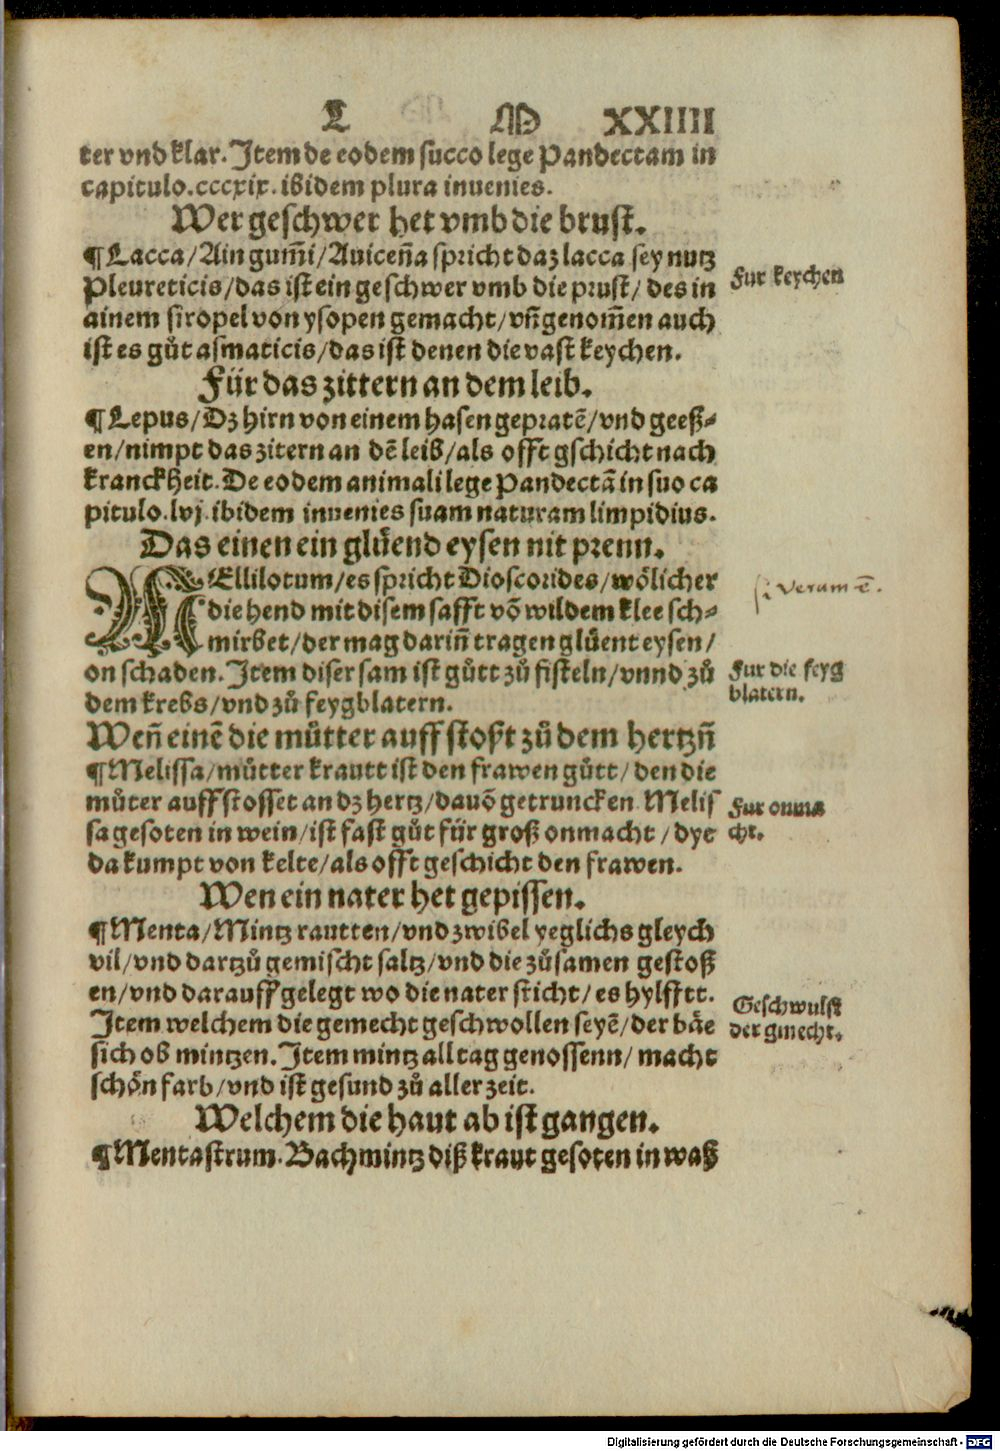 L M XXIIII
ter vnd klar. Item de eodem succo lege Pandectam in
capitulo.cccxix. ibidem plura inuenies.
Wer geschwer het vmb die brust.
¶ Lacca/Ain gum̃i/Auiceña spricht daz lacca sey nutz
Pleureticis/das ist ein geschwer vmb die prust/ des in
ainem siropel von ysopen gemacht/vñ genom̃en auch
ist es gůt asmaticis/das ist denen die vast keychen.
Fur keychen
Für das zittern an dem leib.
¶ Lepus/Dz hirn von einem hasen gepratē/vnd geeß⸗
en/nimpt das zitern an dē leib/als offt gschicht nach
kranckheit. De eodem animali lege Pandectā in suo ca
pitulo.lvj.ibidem inuenies suam naturam limpidius.
Das einen ein glůend eysen nit prenn.
MEllilotum/es spricht Dioscorides/wölicher
die hend mit disem safft vō wildem klee sch⸗
mirbet/der mag dariñ tragen glůent eysen/
on schaden. Item diser sam ist gůtt zů fisteln/vnnd zů
dem krebs/vnd zů feygblatern.
si verum ē.
Fur die feyg
blatern.
Weñ einē die můtter auff stoßt zů dem hertzñ
¶ Melissa/můtter krautt ist den frawen gůtt/den die
můter auff stosset an dz hertz/dauō getruncken Melis
sa gesoten in wein/ist fast gůt für groß onmacht/dye
da kumpt von kelte/als offt geschicht den frawen.
Fur onma
cht.
Wen ein nater het gepissen.
¶ Menta/Mintz rautten/vnd zwibel yeglichs gleych
vil/vnd dartzů gemischt saltz/vnd die zůsamen gestoß
en/vnd darauff gelegt wo die nater sticht/es hylfftt.
Item welchem die gemecht geschwollen seyē/der bäe
sich ob mintzen. Item mintz all tag genossenn/ macht
schön farb/vnd ist gesund zů aller zeit.
Geschwulst
der gmecht.
Welchem die haut ab ist gangen.
¶ Mentastrum. Bachmintz diß kraut gesoten in waß
Digitalisierung gefördert durch die Deutsche Forschungsgemeinschaft - DFG